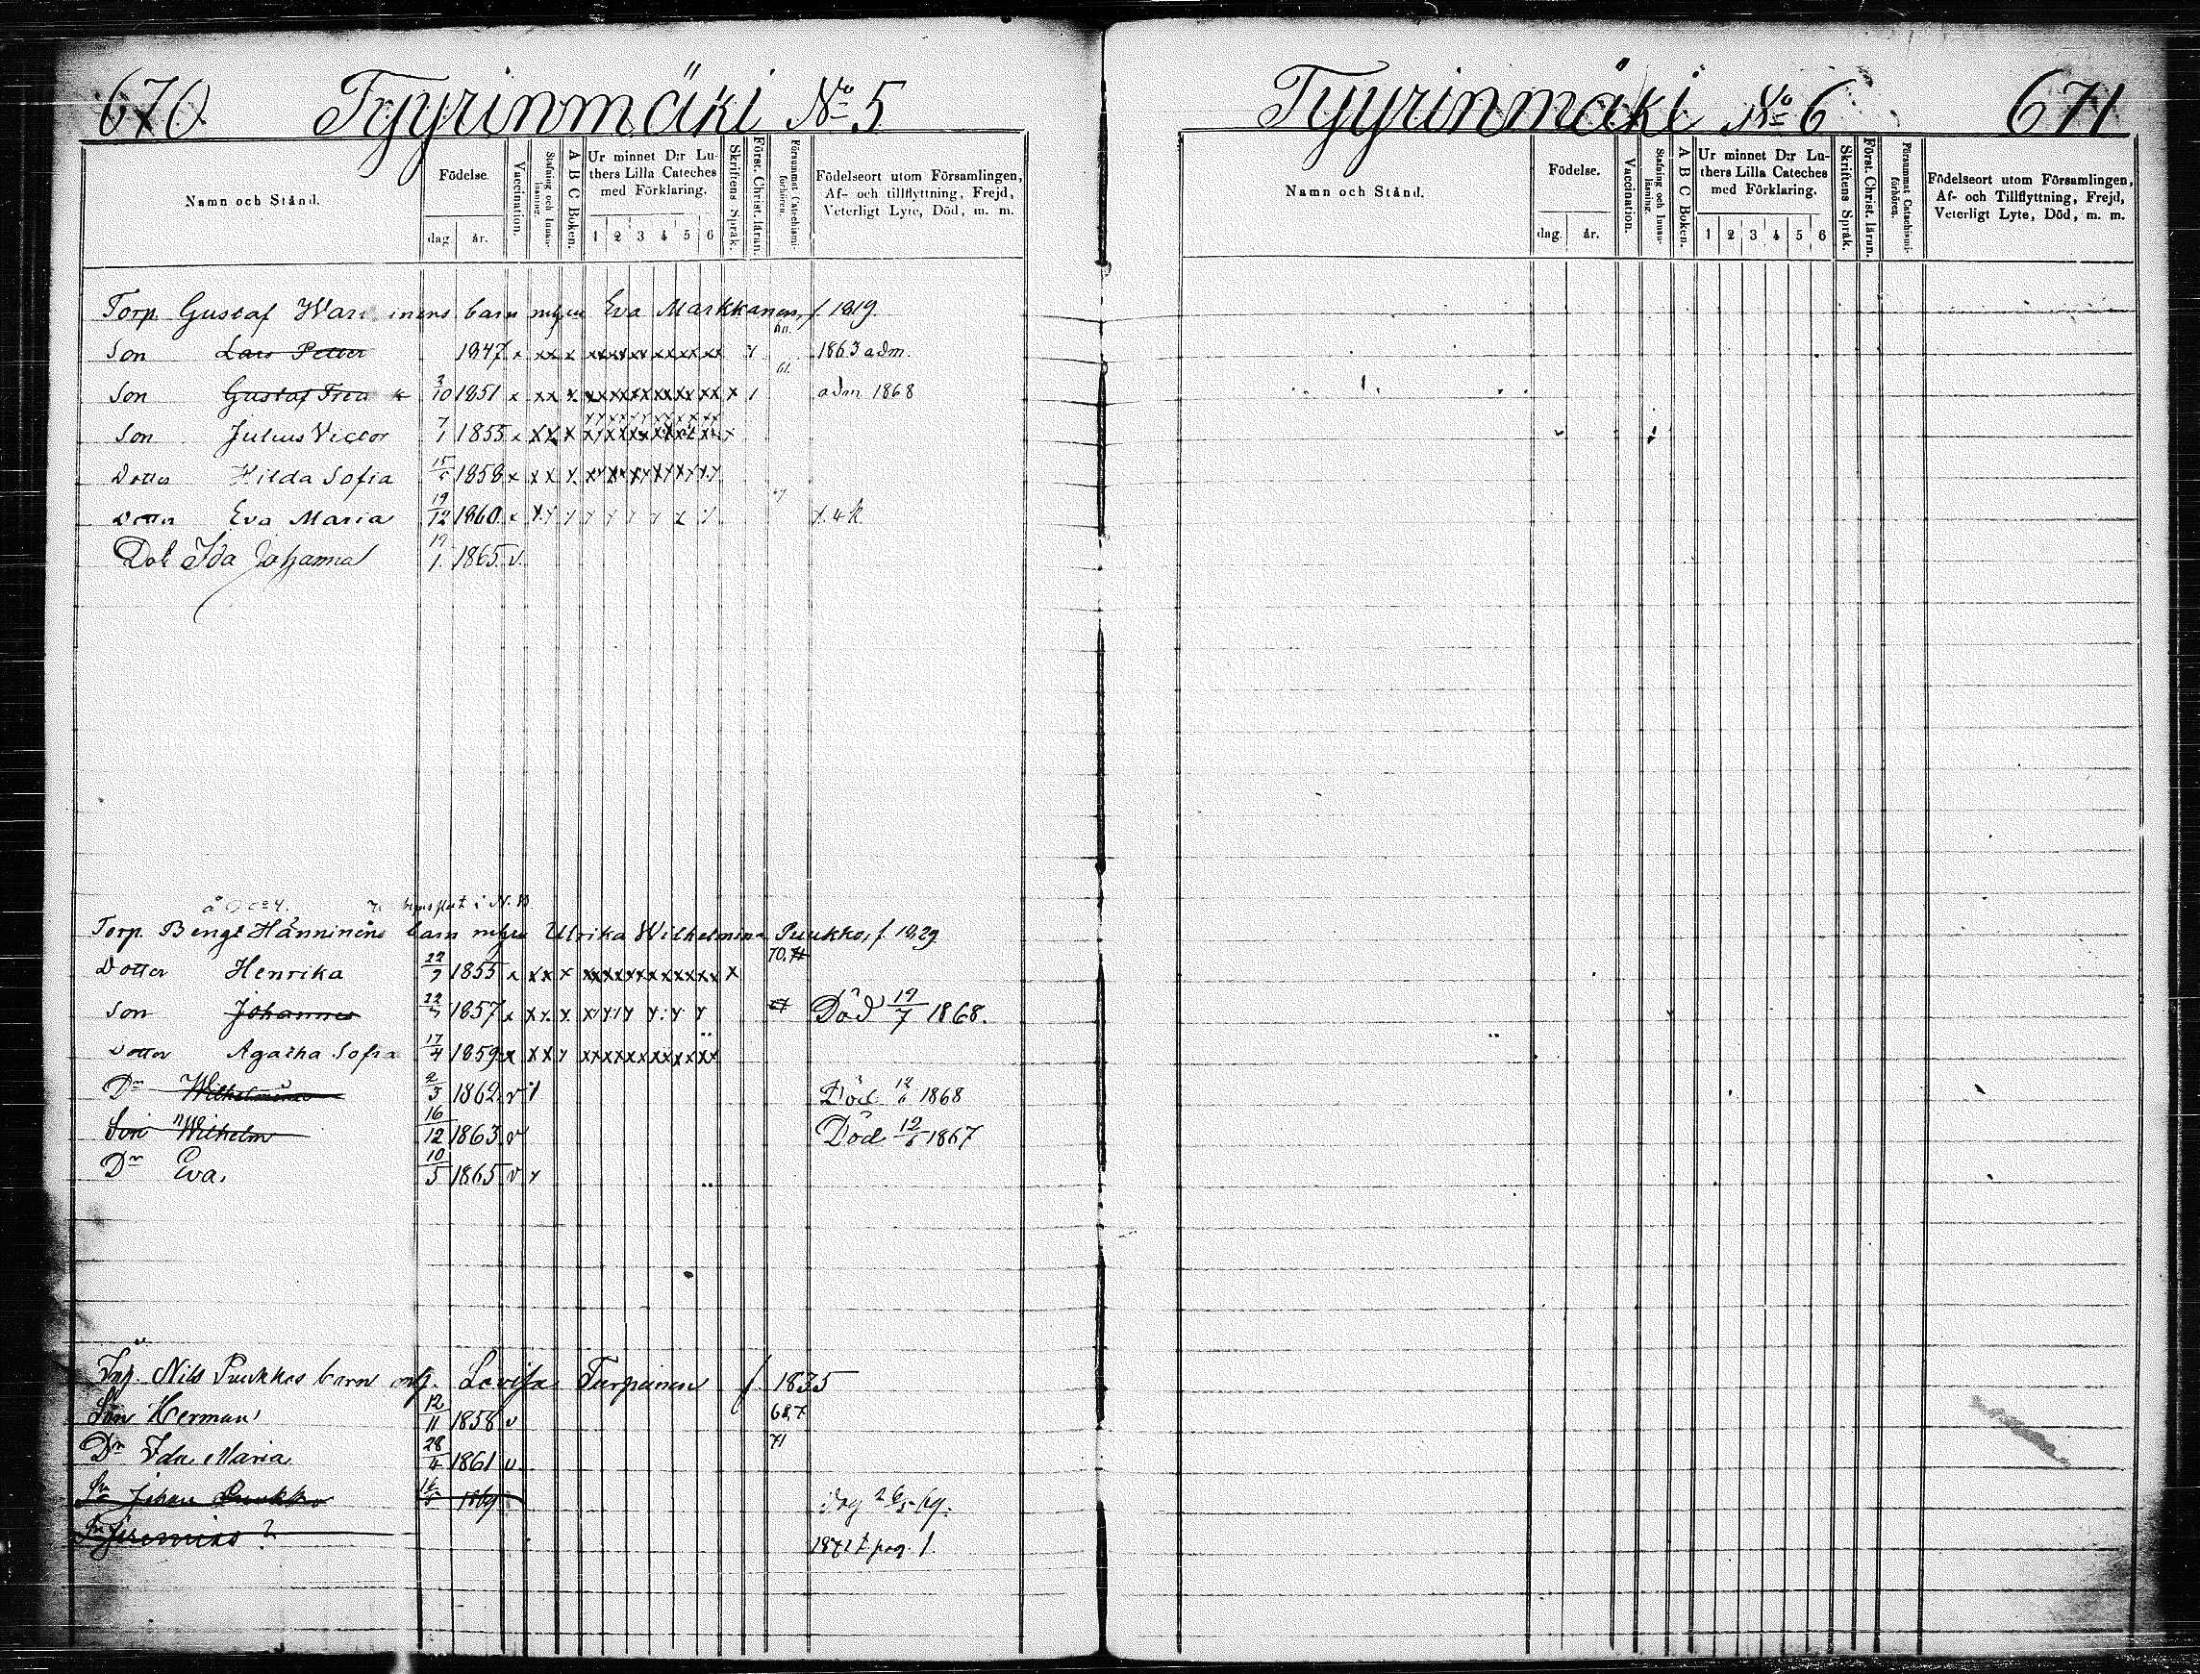 670. Tyyrinmäki No 5
Namn och Stånd.
Födelse.
dag
år.
Vaccination.
Stafning och Innan-läsning.
A B C Boken.
Ur minnet D:r Lu-
thers Lilla Cateches
med Förklaring.
1 2 3 4 5 6
Skriftens Språk.
Först. Christ. läran.
Försummat Catechismi-förhören.
Födelseort utom Församlingen,
Af- och tillflyttning, Frejd,
Veterligt Lyte, Död, m. m.
Torp Gustaf inens barn m Eva Markkanen, f 1819.
Son Lars Petter 1847 x xx x xxxxxxxxxxxx 1863 adm.
61.
Son Gustaf 3/10 1851 x xx x xxxxxxxxxxxx x 1 adm 1868
Son Julius Victor 7/1 1855 x xx x xxxxxxxxxxxx x
Dotter Hilda Sofia 15/ 1858 x xx x
Dotter Eva Maria 19/12 1860 x
Dot Ida Johanna 19/1 1865 v.
i N. 
Torp. Bengt Hänninens barn m Ulrika Wilhelmina Puukko, f. 1829
70.71
Dotter Henrika 22/7 1855 x xx x xxxxxxxxxxxx x
Son Johannes 22/ 1857 x Död 19/7 1868.
Dotter Agatha Sofia 17/4 1859 x xx xxxxxxxxxxxx
Dr Wilhelmina 2/3 1862 v Död 12/6 1868
Son Wilhelm 16/12 1863 v Död 12/6 1867
Dr Eva. 10/5 1865 v
Nils Puukkos barn m Lovisa Turpeinen f 1835
Son Herman 12/11 1858 v
Dr Ida Maria 28/4 1861 v 71
Sn Johan Puukko 1869
Sn Jeremias ? pag. 1.
Tyyrinmäki No 6 671
Namn och Stånd.
Födelse.
dag
år.
Vaccination.
Stafning och Innan-läsning.
A B C Boken.
Ur minnet D:r Lu-
thers Lilla Cateches
med Förklaring.
1 2 3 4 5 6
Skriftens Språk.
Först. Christ. läran.
Försummat Catechismi-förhören.
Födelseort utom Församlingen,
Af- och Tillflyttning, Frejd,
Veterligt Lyte, Död, m. m.